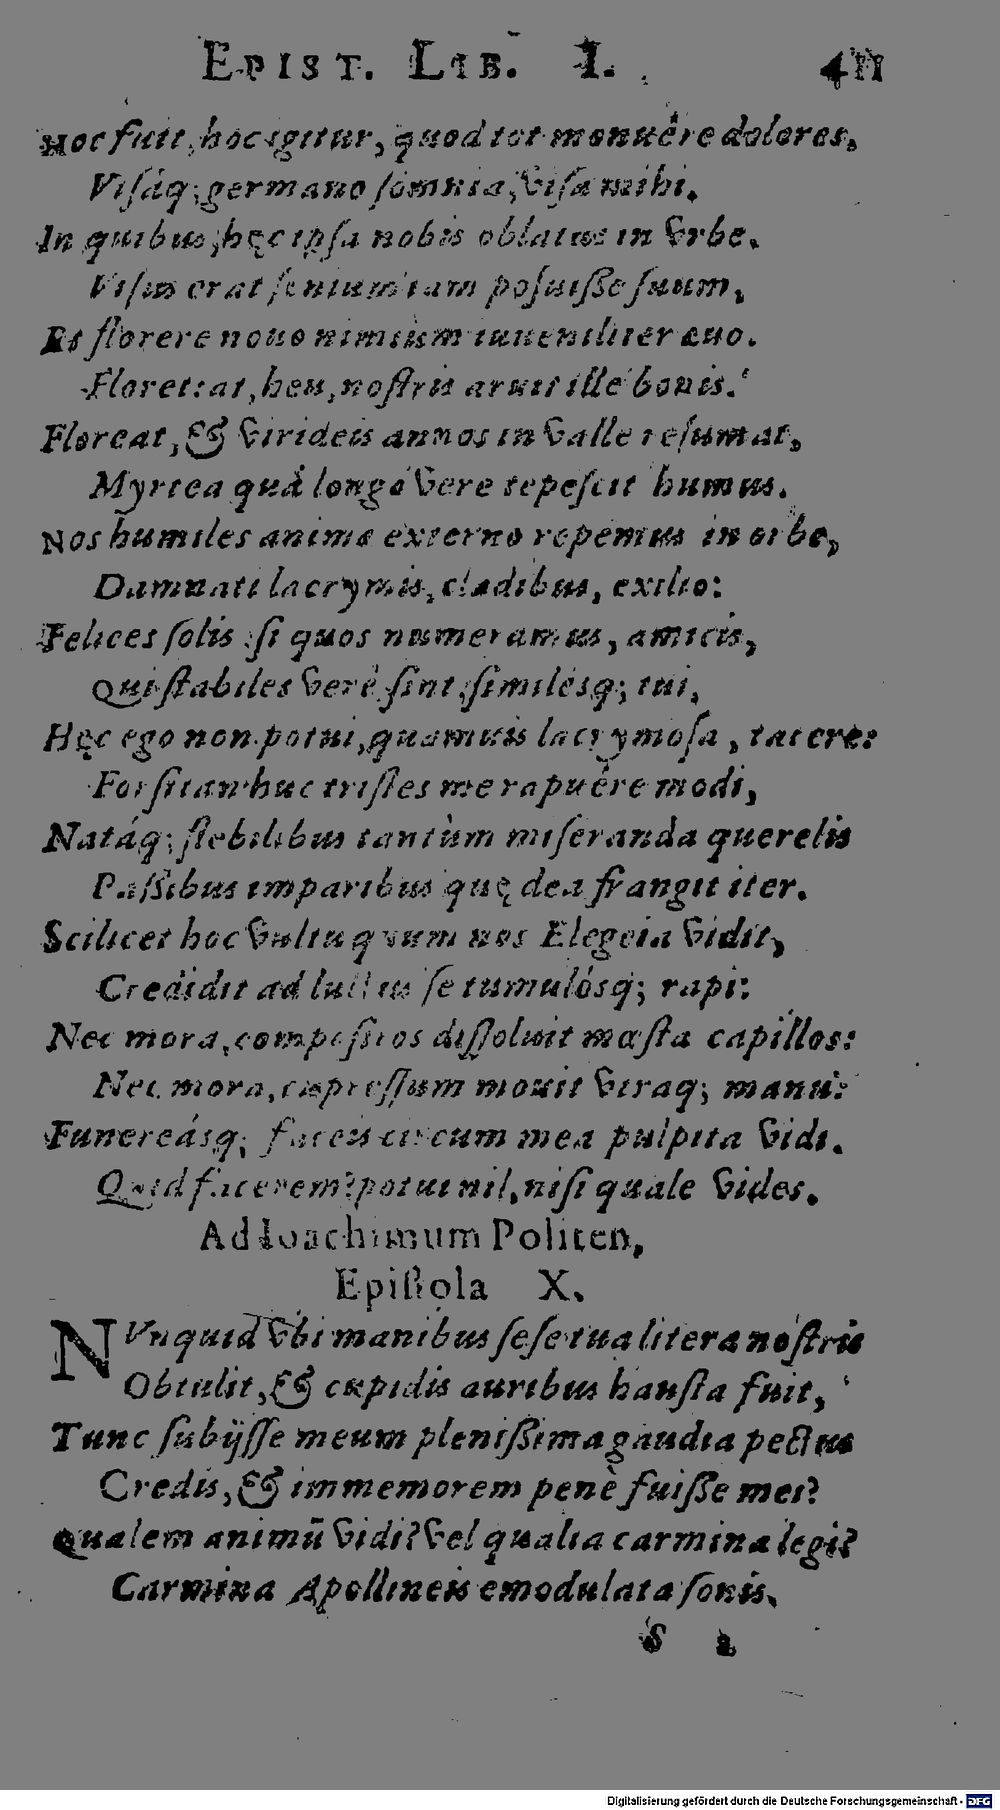 EPIST. LIB. I. 411
Hoc fuit, hoc igitur, quod tot monuêre dolores,
Visáq; germano somnia, visa mihi.
In quibus, hęc ipsa nobis oblatus in vrbe.
Visus erat senium iam posuisse suum,
Et florere nouo nimium iuueniliter æuo.
Floret: at, heu, nostris aruit ille bonis.
Floreat, & virideis annos in valle resumat,
Myrtea quà longo vere tepescit humus.
Nos humiles animæ externo repemus in orbe,
Damnati lacrymis, cladibus, exilio:
Felices solis si quos numeramus, amicis,
Qui stabiles verè sint, similésq; tui,
Hęc ego non potui, quamuis lacrymosa, tacere:
Forsitan huc tristes me rapuêre modi,
Natáq; flebilibus tantùm miseranda querelis
Passibus imparibus quę dea frangit iter.
Scilicet hoc vultu quum nos Elegeia vidit,
Credidit ad luctus se tumulósq; rapi:
Nec mora, compositos dissoluit mœsta capillos:
Nec mora, cupressum mouit vtraq; manu:
Funereásq; faceis circum mea pulpita vidi.
Quid facerem? potui nil, nisi quale vides.
Ad Ioachimum Politen,
Epistola X.
NVnquid vbi manibus sese tua litera nostris
Obtulit, & cupidis auribus hausta fuit,
Tunc subijsse meum plenissima gaudia pectus
Credis, & immemorem penè fuisse mei?
Qualem animū vidi? vel qualia carmina legi?
Carmina Apollineis emodulata sonis.
S 2
Digitalisierung gefördert durch die Deutsche Forschungsgemeinschaft - DFG